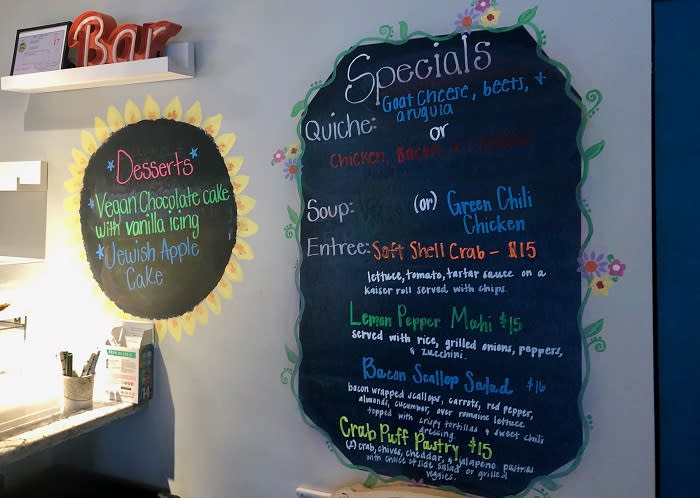 Bar
Desserts
Vegan Chocolate cake
with vanilla icing
Jewish Apple
Cake
Specials
Quiche: Goat Cheese, beets, +
arugula
or
Chicken, Bacon
Soup: (or) Green Chili
Chicken
Entree: Soft Shell Crab - $15
lettuce, tomato, tartar sauce on a
Kaiser roll served with chips.
Lemon Pepper Mahi $15
served with rice, grilled onions, peppers,
& zucchini.
Bacon Scallop Salad $16
bacon wrapped scallops, carrots, red pepper,
almonds, cucumber, over romaine lettuce
topped with crispy tortillas & sweet chili
dressing.
Crab Puff Pastry $15
(2) crab, chives, cheddar, & jalapeno pastries
with choice of side salad or grilled
veggies.